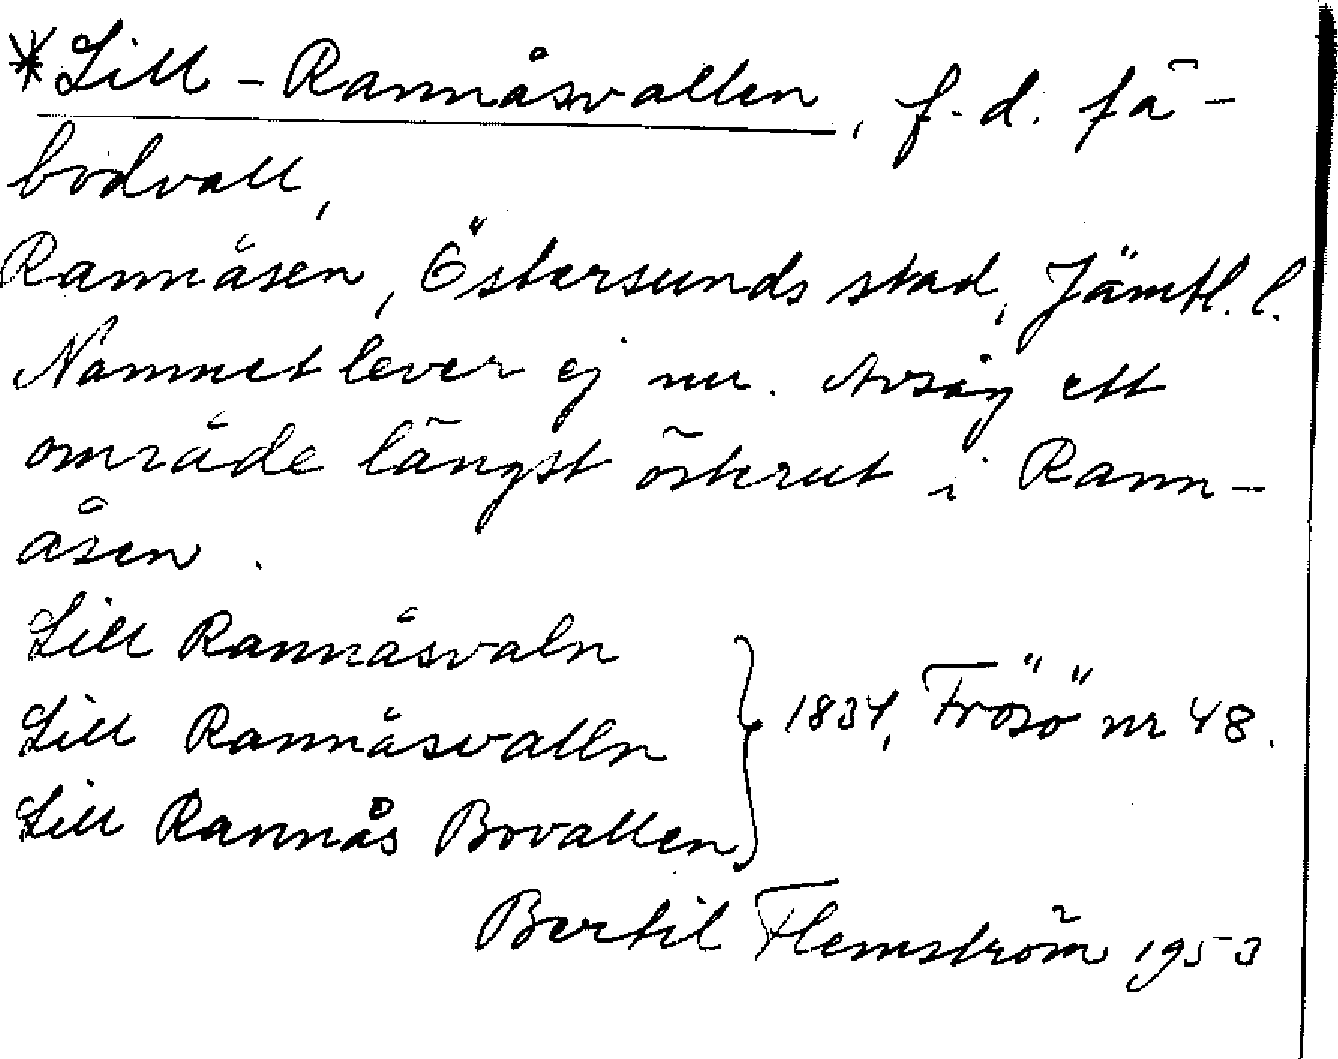 *Lill-Rannåsvallen, f.d. fä-
bodvall,
Rannåsen, Östersunds stad, Jämtl. l.
Namnet lever ej nu. Avsåg ett
område längst österut i Rann-
åsen.
Lill Rannåsvaln
Lill Rannåsvalln
Lill Rannås Bovallen } 1834, Frösö nr 48.
Bertil Flemström 1953